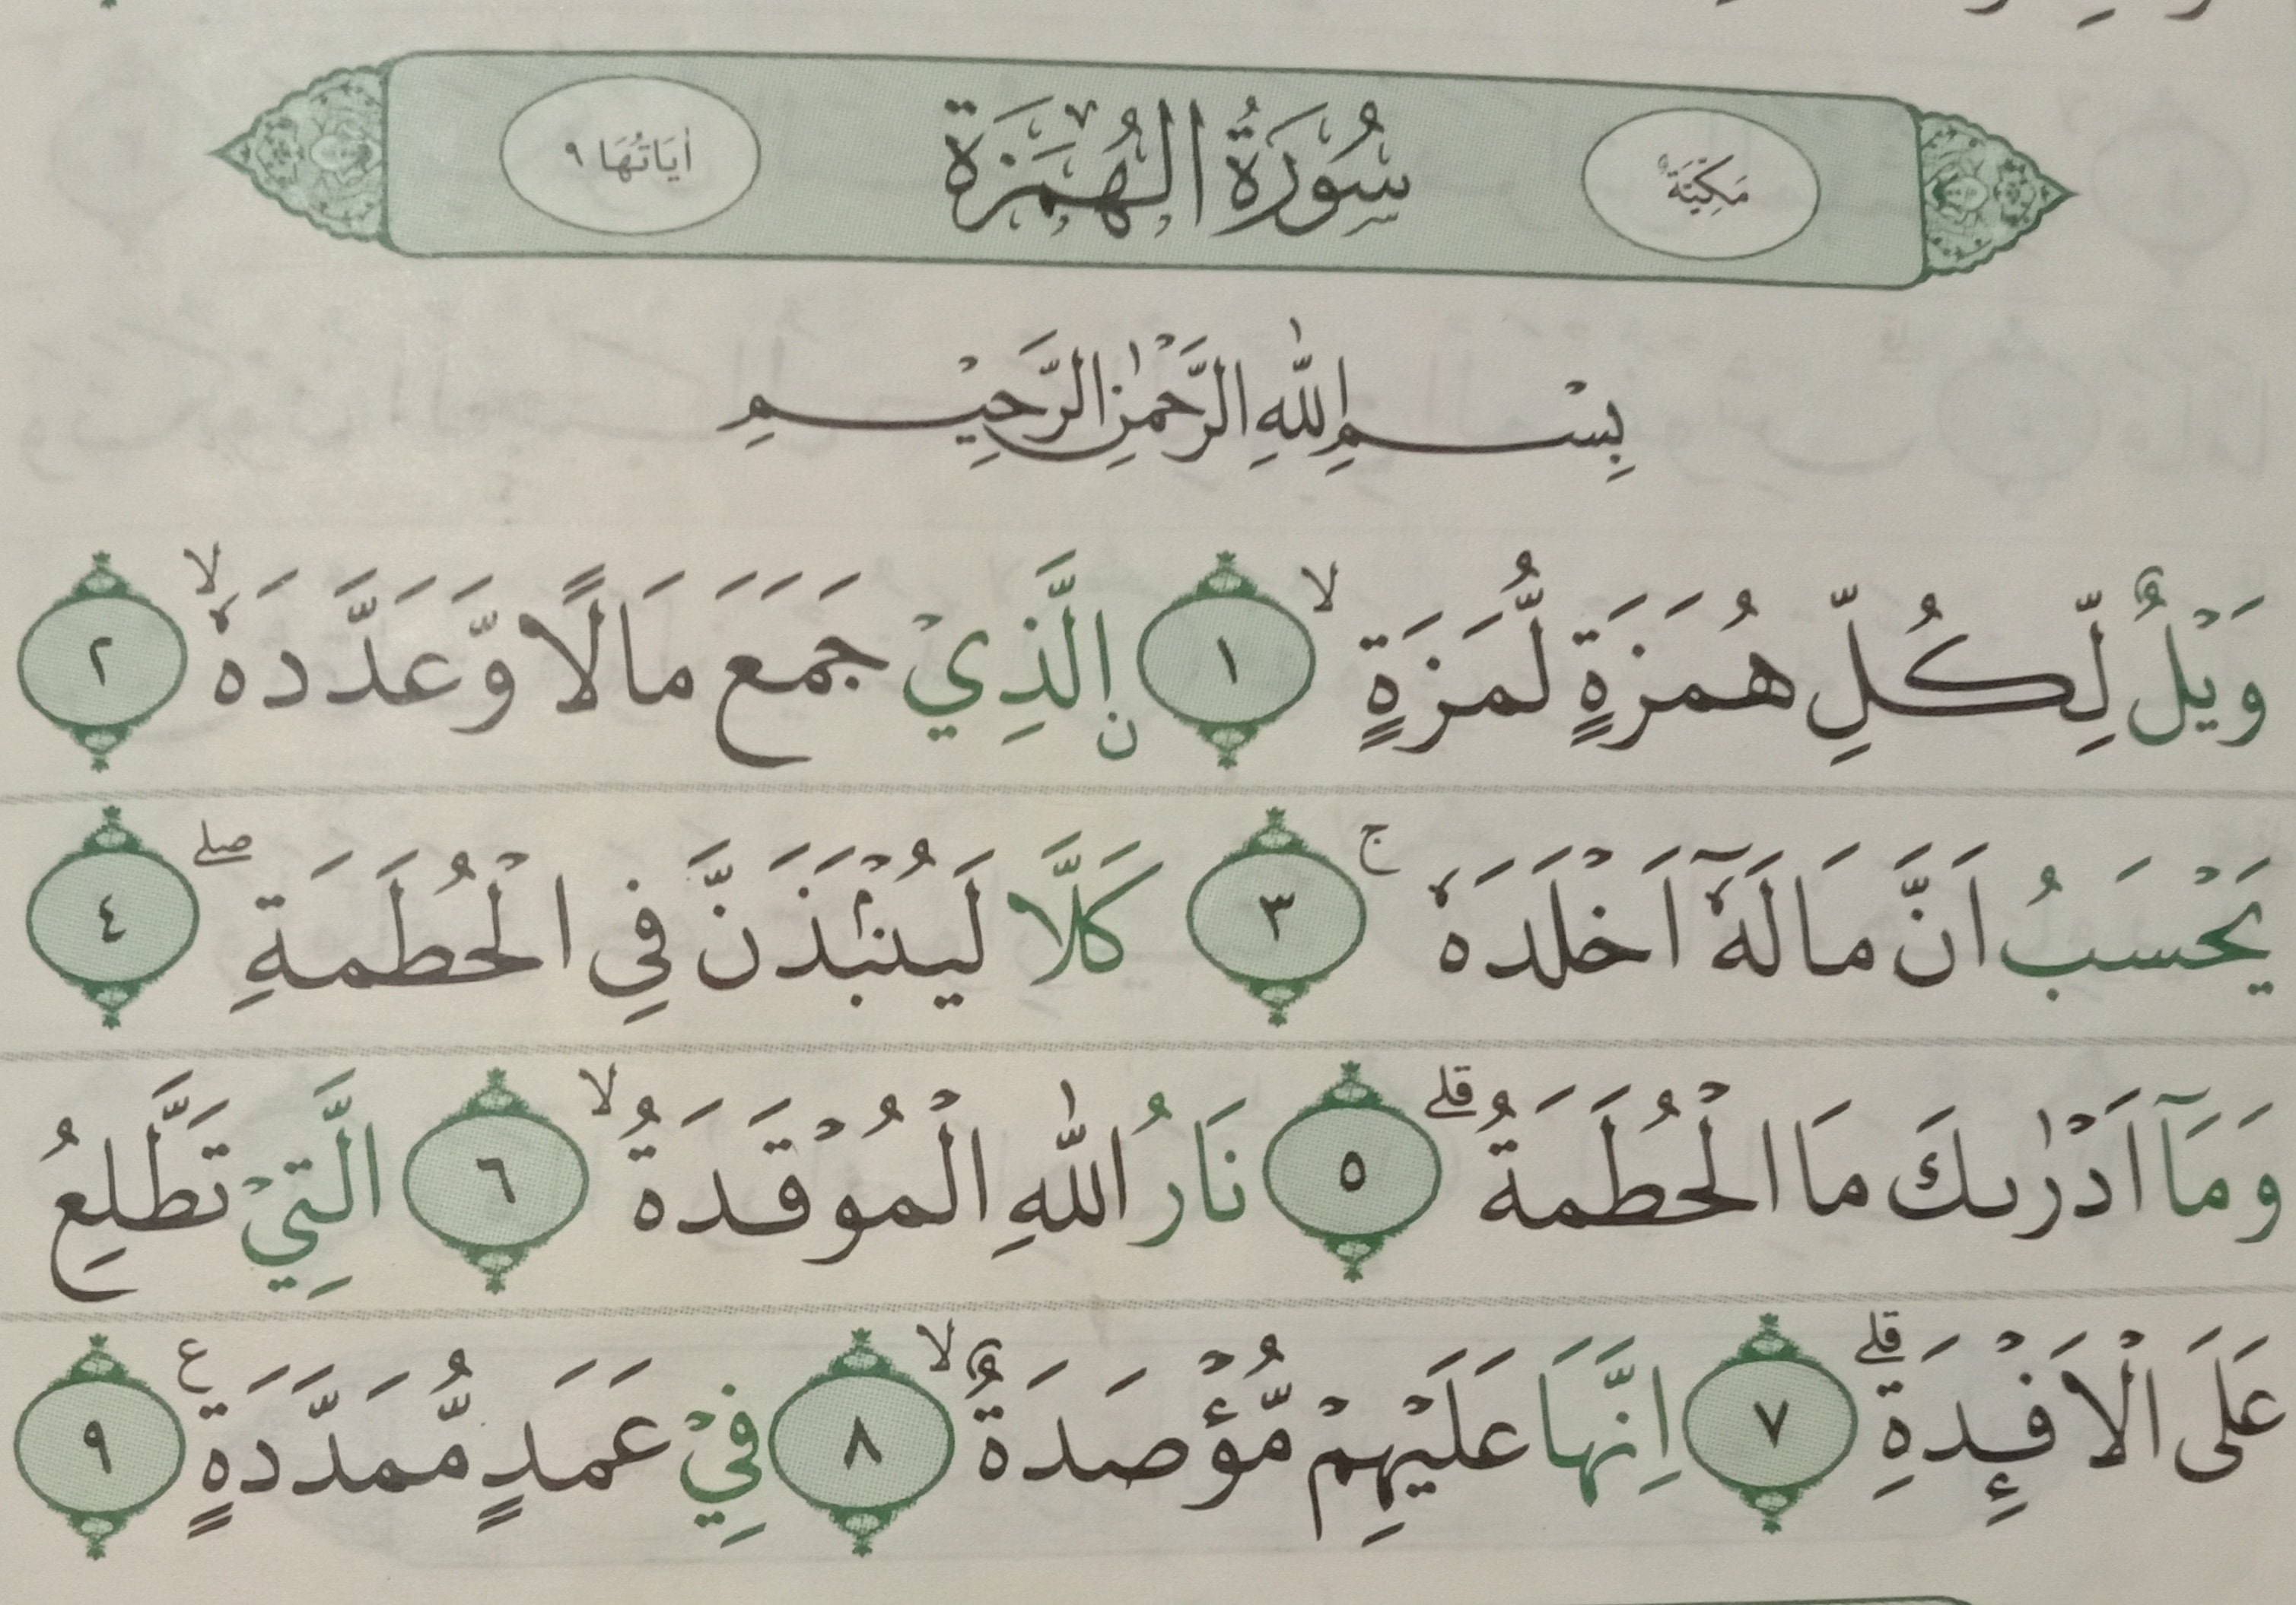 مَكِّيَّةٌ سُورَةُ الْهُمَزَةِ اٰيَاتُهَا ٩
بِسْمِ اللّٰهِ الرَّحْمٰنِ الرَّحِيْمِ
وَيْلٌ لِّكُلِّ هُمَزَةٍ لُّمَزَةٍ ۙ ١ ۨالَّذِيْ جَمَعَ مَالًا وَّعَدَّدَهٗ ۙ ٢
يَحْسَبُ اَنَّ مَالَهٗٓ اَخْلَدَهٗ ۚ ٣ كَلَّا لَيُنْۢبَذَنَّ فِى الْحُطَمَةِ ۖ ٤
وَمَآ اَدْرٰىكَ مَا الْحُطَمَةُ ۗ ٥ نَارُ اللّٰهِ الْمُوْقَدَةُ ۙ ٦ الَّتِيْ تَطَّلِعُ
عَلَى الْاَفْـِٕدَةِ ۗ ٧ اِنَّهَا عَلَيْهِمْ مُّؤْصَدَةٌ ۙ ٨ فِيْ عَمَدٍ مُّمَدَّدَةٍ ࣖ ٩